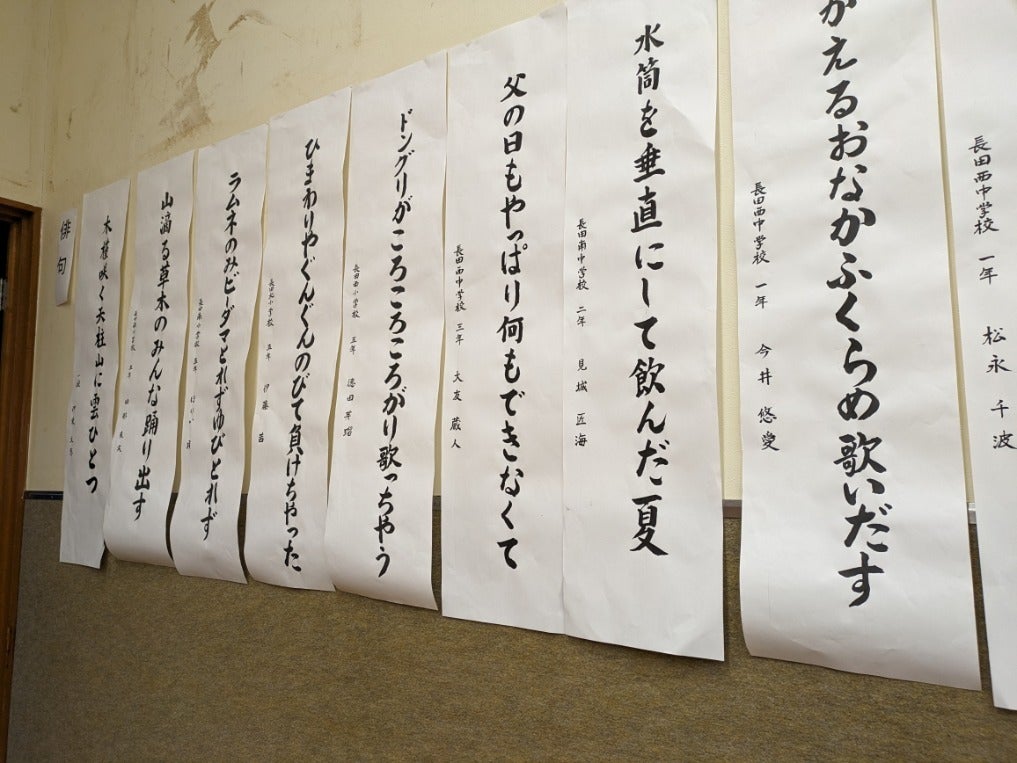 長田西中学校 一年 松永 千波
がえるおなかふくらめ歌いだす
長田西中学校 一年 今井 悠愛
水筒を垂直にして飲んだ夏
長田南中学校 二年 見城 匠海
父の日もやっぱり何もできなくて
長田西中学校 三年 大友 蔵人
ドングリがころころころがり歌っちゃう
長田西小学校 五年 徳田
ひまわりやぐんぐんのびて負けちゃった
長田北小学校 五年 伊藤
ラムネのみビーダマとれずゆびとれず
長田南小学校 五年
山滴る草木のみんな踊り出す
木槿咲く天柱山に雲ひとつ
一般
俳句